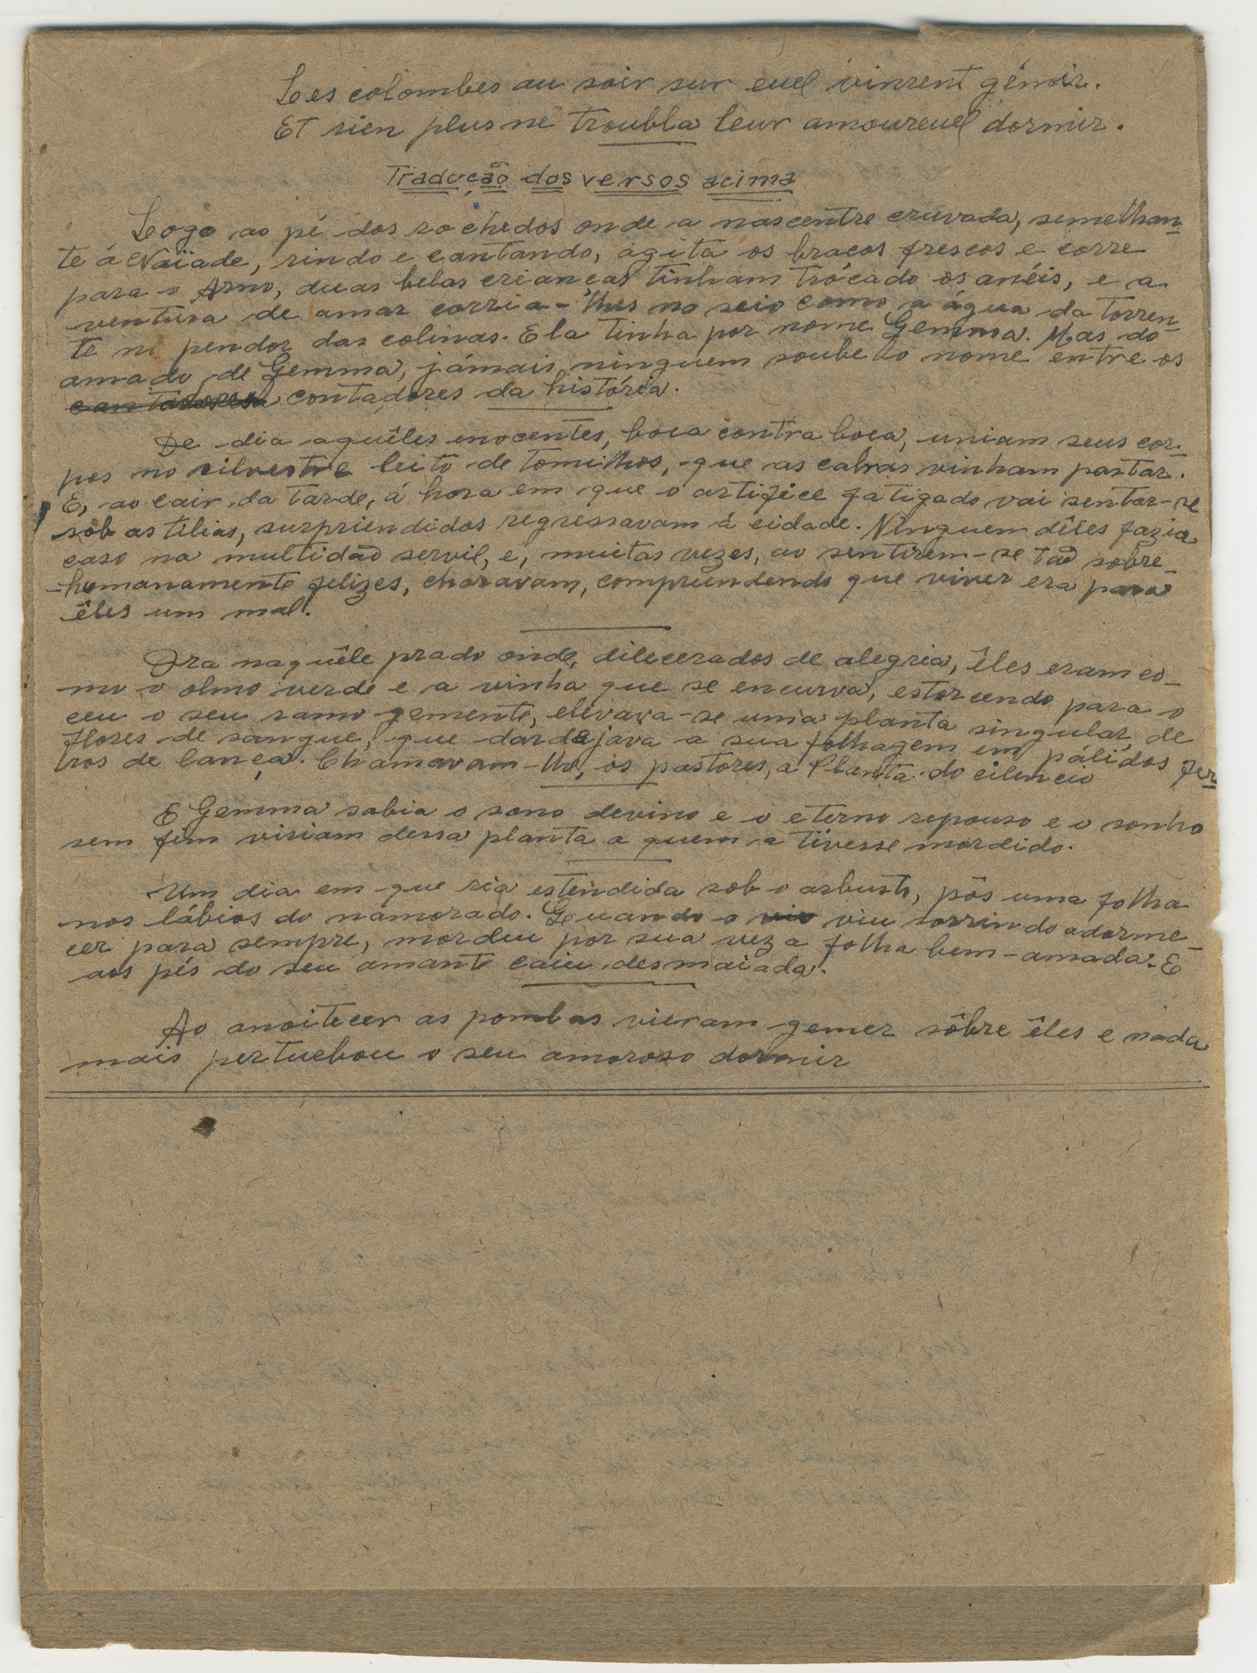 Les colombes au soir sur euel vinrent gémir.
Et rien plus ne troubla leur amoureuel dormir.
Tradução dos versos acima
Logo ao pé dos rochedos onde a nascente cruvada, semelhan-
te á Naïade, rindo e cantando, agita os braços frescos e corre
para o Arno, duas belas crianças tinham trócado os anéis, e a
ventura de amar corria-lhes no seio como a água da torren-
te no pendor das colinas. Ela tinha por nome Gemma. Mas do
amado de Gemma, jámais ninguem soube o nome entre os
contadores da história.
De dia aquêles inocentes, boca contra boca, uniam seus cor-
pos no silvestre leito de tomilhos, que as cabras vinham pastar.
E, ao cair da tarde, á hora em que o artifice fatigado vai sentar-se
sôb as tílias, surpriendidos regressavam á cidade. Ninguem dêles fazia
caso na multidão servil, e, muitas vezes, ao sentirem-se tão sobre-
-humanamente felizes, choravam, compriendendo que viver era para
êles um mal.
Ora naquêle prado onde, dilecerados de alegria, êles eram co-
mo o olmo verde e a vinha que se encurva, estorcendo para o
ceu o seu ramo gemente, elevava-se uma planta singular, de
flores de sangue, que dardejava a sua folhagem em pálidos fer-
ros de lança. Chamavam-lhe, os pastores, a Planta do cilencio
E Gemma sabia o sono devino e o eterno repouso e o sonho
sem fim viriam dessa planta a quem a tivesse mordido.
Um dia em que ria estendida sob o arbusto, pôs uma folha
nos lábios do namorado. Quando o viu sorrindo adorme-
cer para sempre, mordeu por sua vez a folha bem-amada. E
aos pés do seu amante caiu desmaiada.
Ao anoitecer as pombas vieram gemer sôbre êles e nada
mais pertuebou o seu amoroso dormir